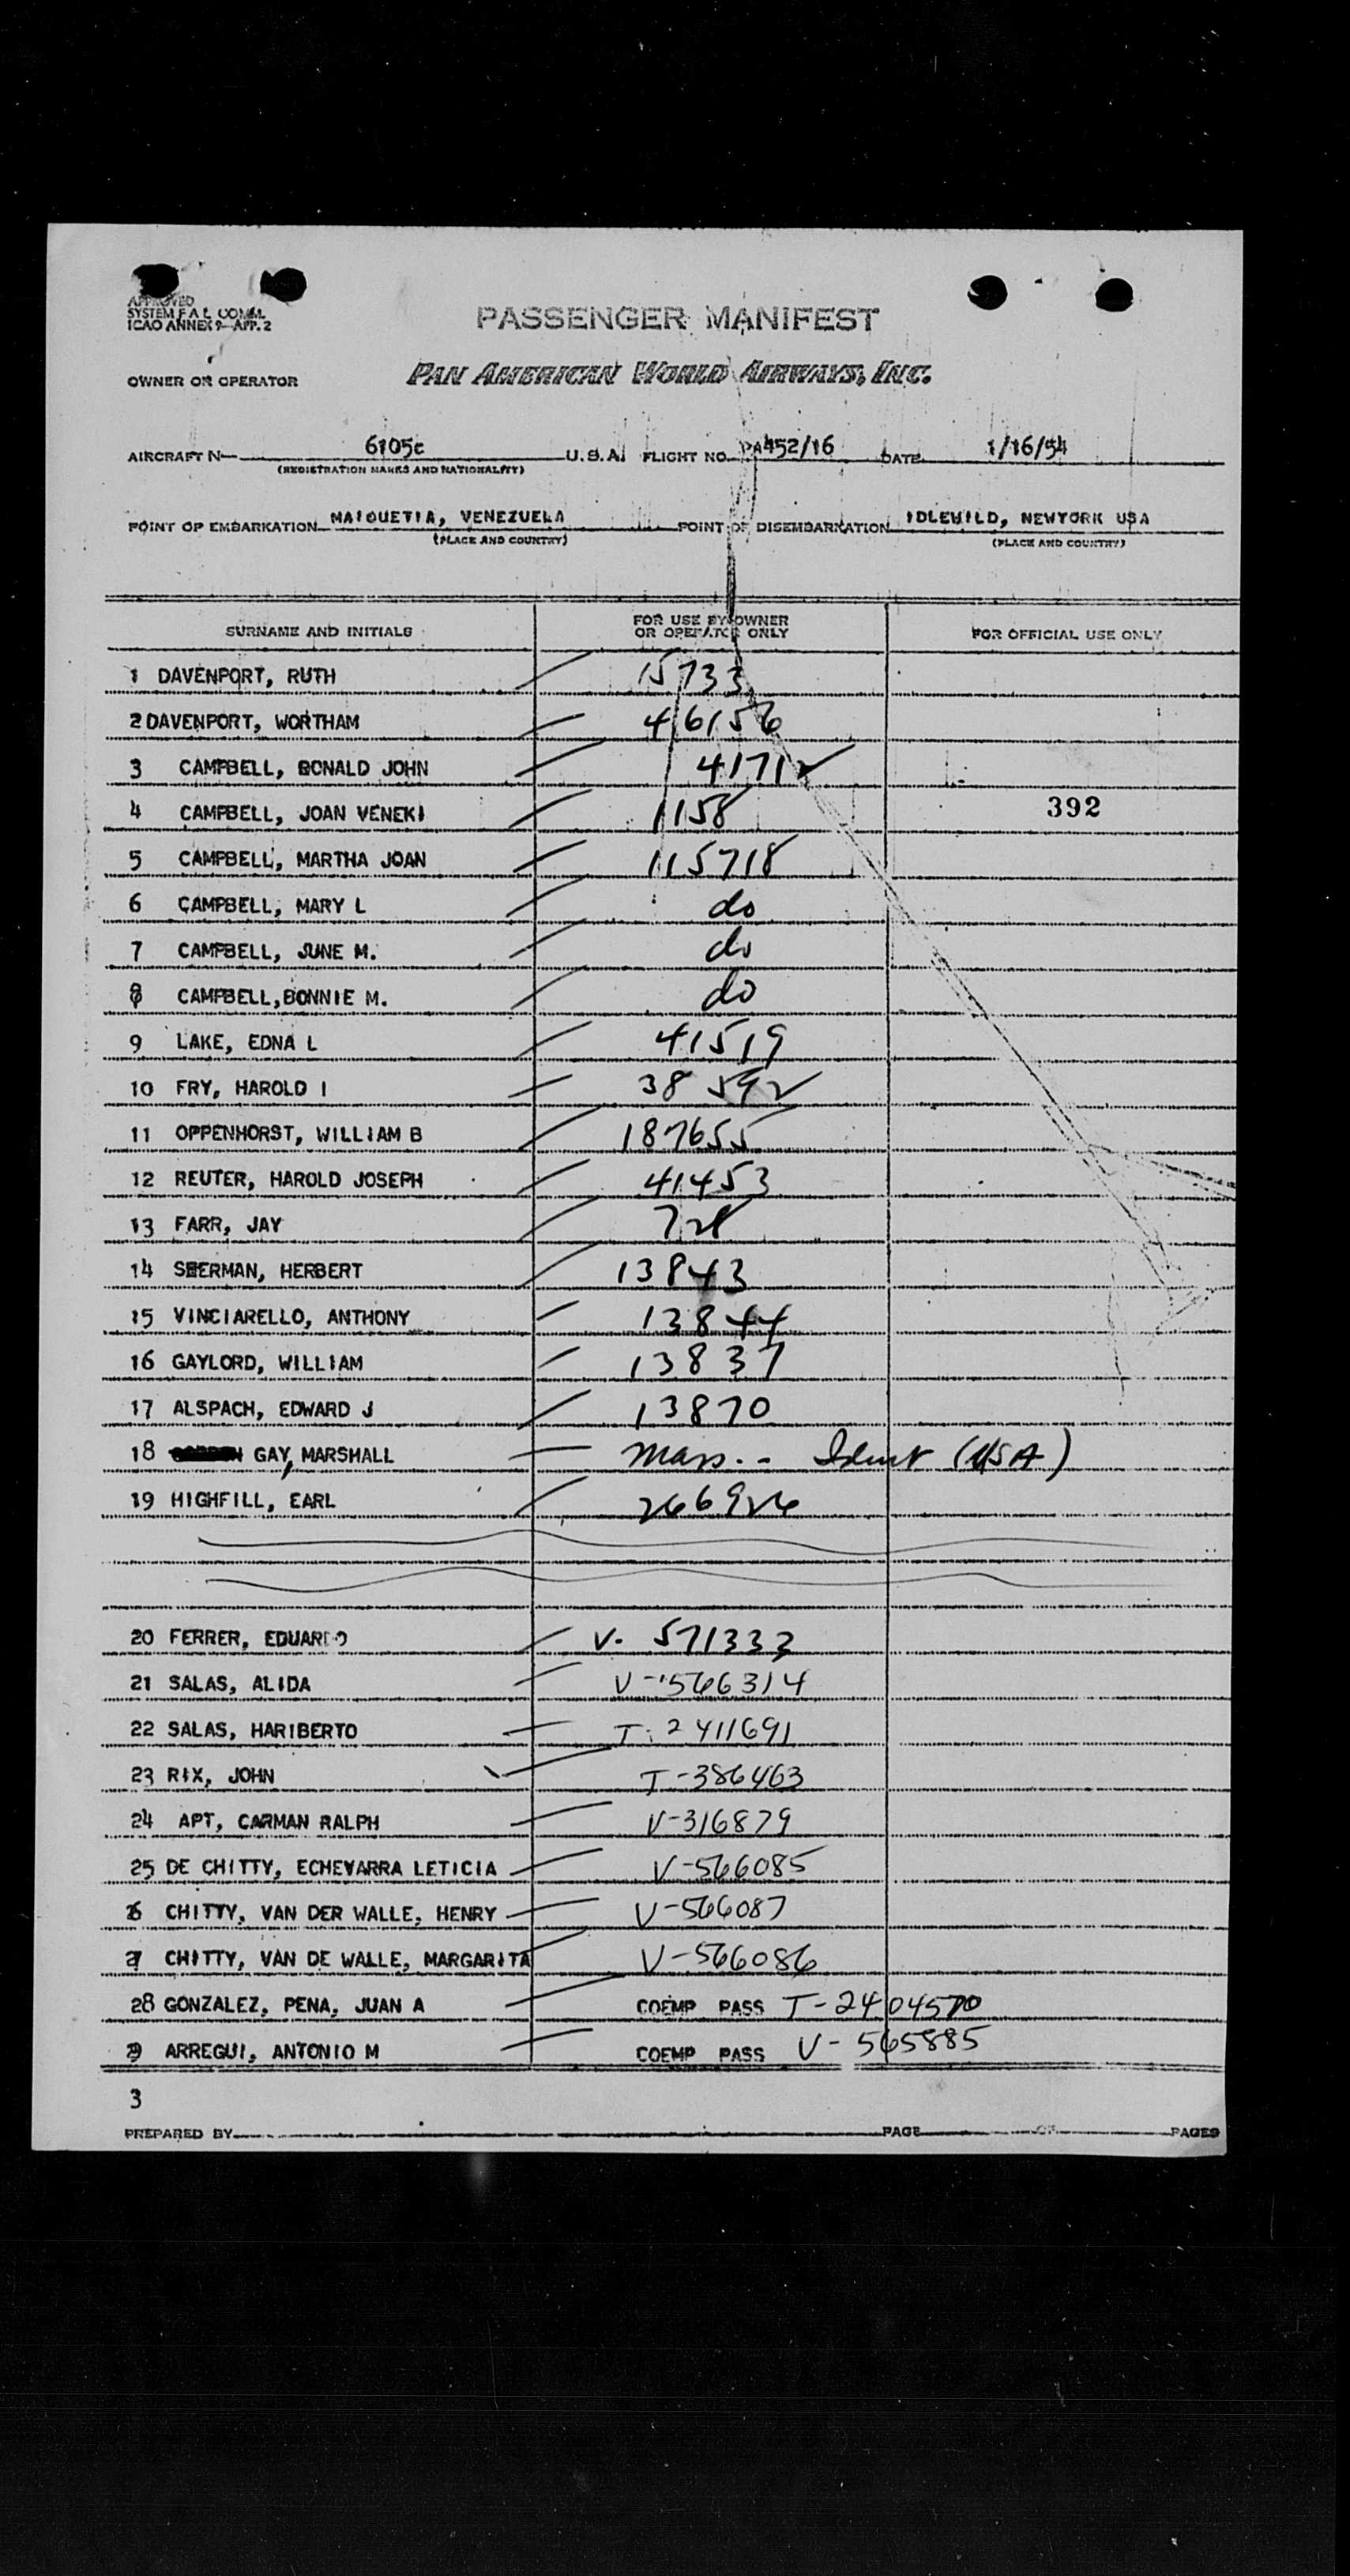 APPROVED
SYSTEM F A L COM'L
ICAO ANNEX 9—APP. 2
PASSENGER MANIFEST
OWNER OR OPERATOR PAN AMERICAN WORLD AIRWAYS, INC.
AIRCRAFT N— 6105c U.S.A. FLIGHT NO. PA452/16 DATE 1/16/54
(REGISTRATION MARKS AND NATIONALITY)
POINT OF EMBARKATION MAIQUETIA, VENEZUELA POINT OF DISEMBARKATION IDLEWILD, NEWYORK USA
(PLACE AND COUNTRY) (PLACE AND COUNTRY)
SURNAME AND INITIALS FOR USE BY OWNER OR OPERATOR ONLY FOR OFFICIAL USE ONLY
1 DAVENPORT, RUTH 15733
2 DAVENPORT, WORTHAM 46156
3 CAMPBELL, DONALD JOHN 41712
4 CAMPBELL, JOAN VENEKI 1158 392
5 CAMPBELL, MARTHA JOAN 115718
6 CAMPBELL, MARY L do
7 CAMPBELL, JUNE M. do
8 CAMPBELL, BONNIE M. do
9 LAKE, EDNA L 41519
10 FRY, HAROLD I 38592
11 OPPENHORST, WILLIAM B 187655
12 REUTER, HAROLD JOSEPH 41453
13 FARR, JAY 728
14 SHERMAN, HERBERT 13843
15 VINCIARELLO, ANTHONY 13844
16 GAYLORD, WILLIAM 13837
17 ALSPACH, EDWARD J 13870
18 GAY, MARSHALL Mass. - Ident (USA)
19 HIGHFILL, EARL 266926
20 FERRER, EDUARDO V- 571333
21 SALAS, ALIDA V-566314
22 SALAS, HARIBERTO T- 2411691
23 RIX, JOHN T-386463
24 APT, CARMAN RALPH V-316879
25 DE CHITTY, ECHEVARRA LETICIA V-566085
26 CHITTY, VAN DER WALLE, HENRY V-566087
27 CHITTY, VAN DE WALLE, MARGARITA V-566086
28 GONZALEZ, PENA, JUAN A COEMP PASS T-2404570
29 ARREGUI, ANTONIO M COEMP PASS V-565885
3
PREPARED BY PAGE OF PAGES